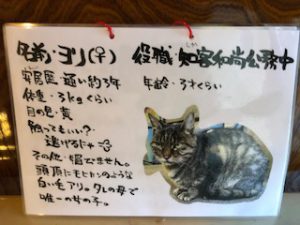 名前・ヨリ(♀)
役職・知客和尚公務中
しか
寄居歴・通い約3年
年齢・5才くらい
体重・3kgくらい
目の色・黄
触ってもいい?・
逃げるにゃ
その他・媚びません。
頭頂にモヒカンのような
白い毛アリ。タレの母で
唯一の女の子。